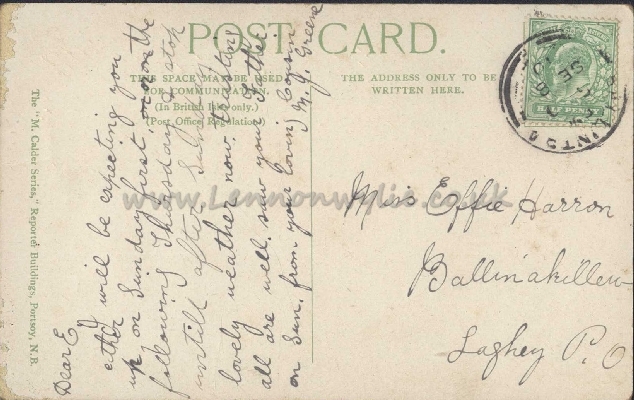 POST CARD.
THIS SPACE MAY BE USED
FOR COMMUNICATION.
(In British Isles only.)
(Post Office Regulation).
THE ADDRESS ONLY TO BE
WRITTEN HERE.
The "M. Calder Series," Reporter Buildings, Portsoy, N.B.
Dear E
I will be expecting you
either
up on Sunday first or on the
following Thursday & stok
untill after Sunday
lovely weather now. trusting
all are well. saw your Father
on Sun. from your loving Cousin
M. J. Greene
Miss Effie Harron
Ballinakillew
Laghey P.O
HALFPENNY
www.Lennonwylie.co.uk